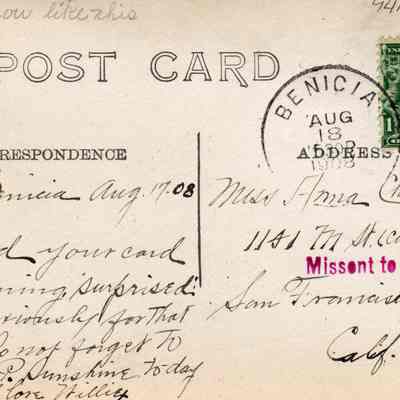 ow like this
POST CARD
BENICIA
AUG
18
1908
RESPONDENCE
ADDRESS
nicia Aug 17 08
d your card
ning surprised.
riously for that
o not forget to
P. Sunshine today
Love Willie
Miss Anna
1151 M St.
Missent to
San Francisc
Calif.